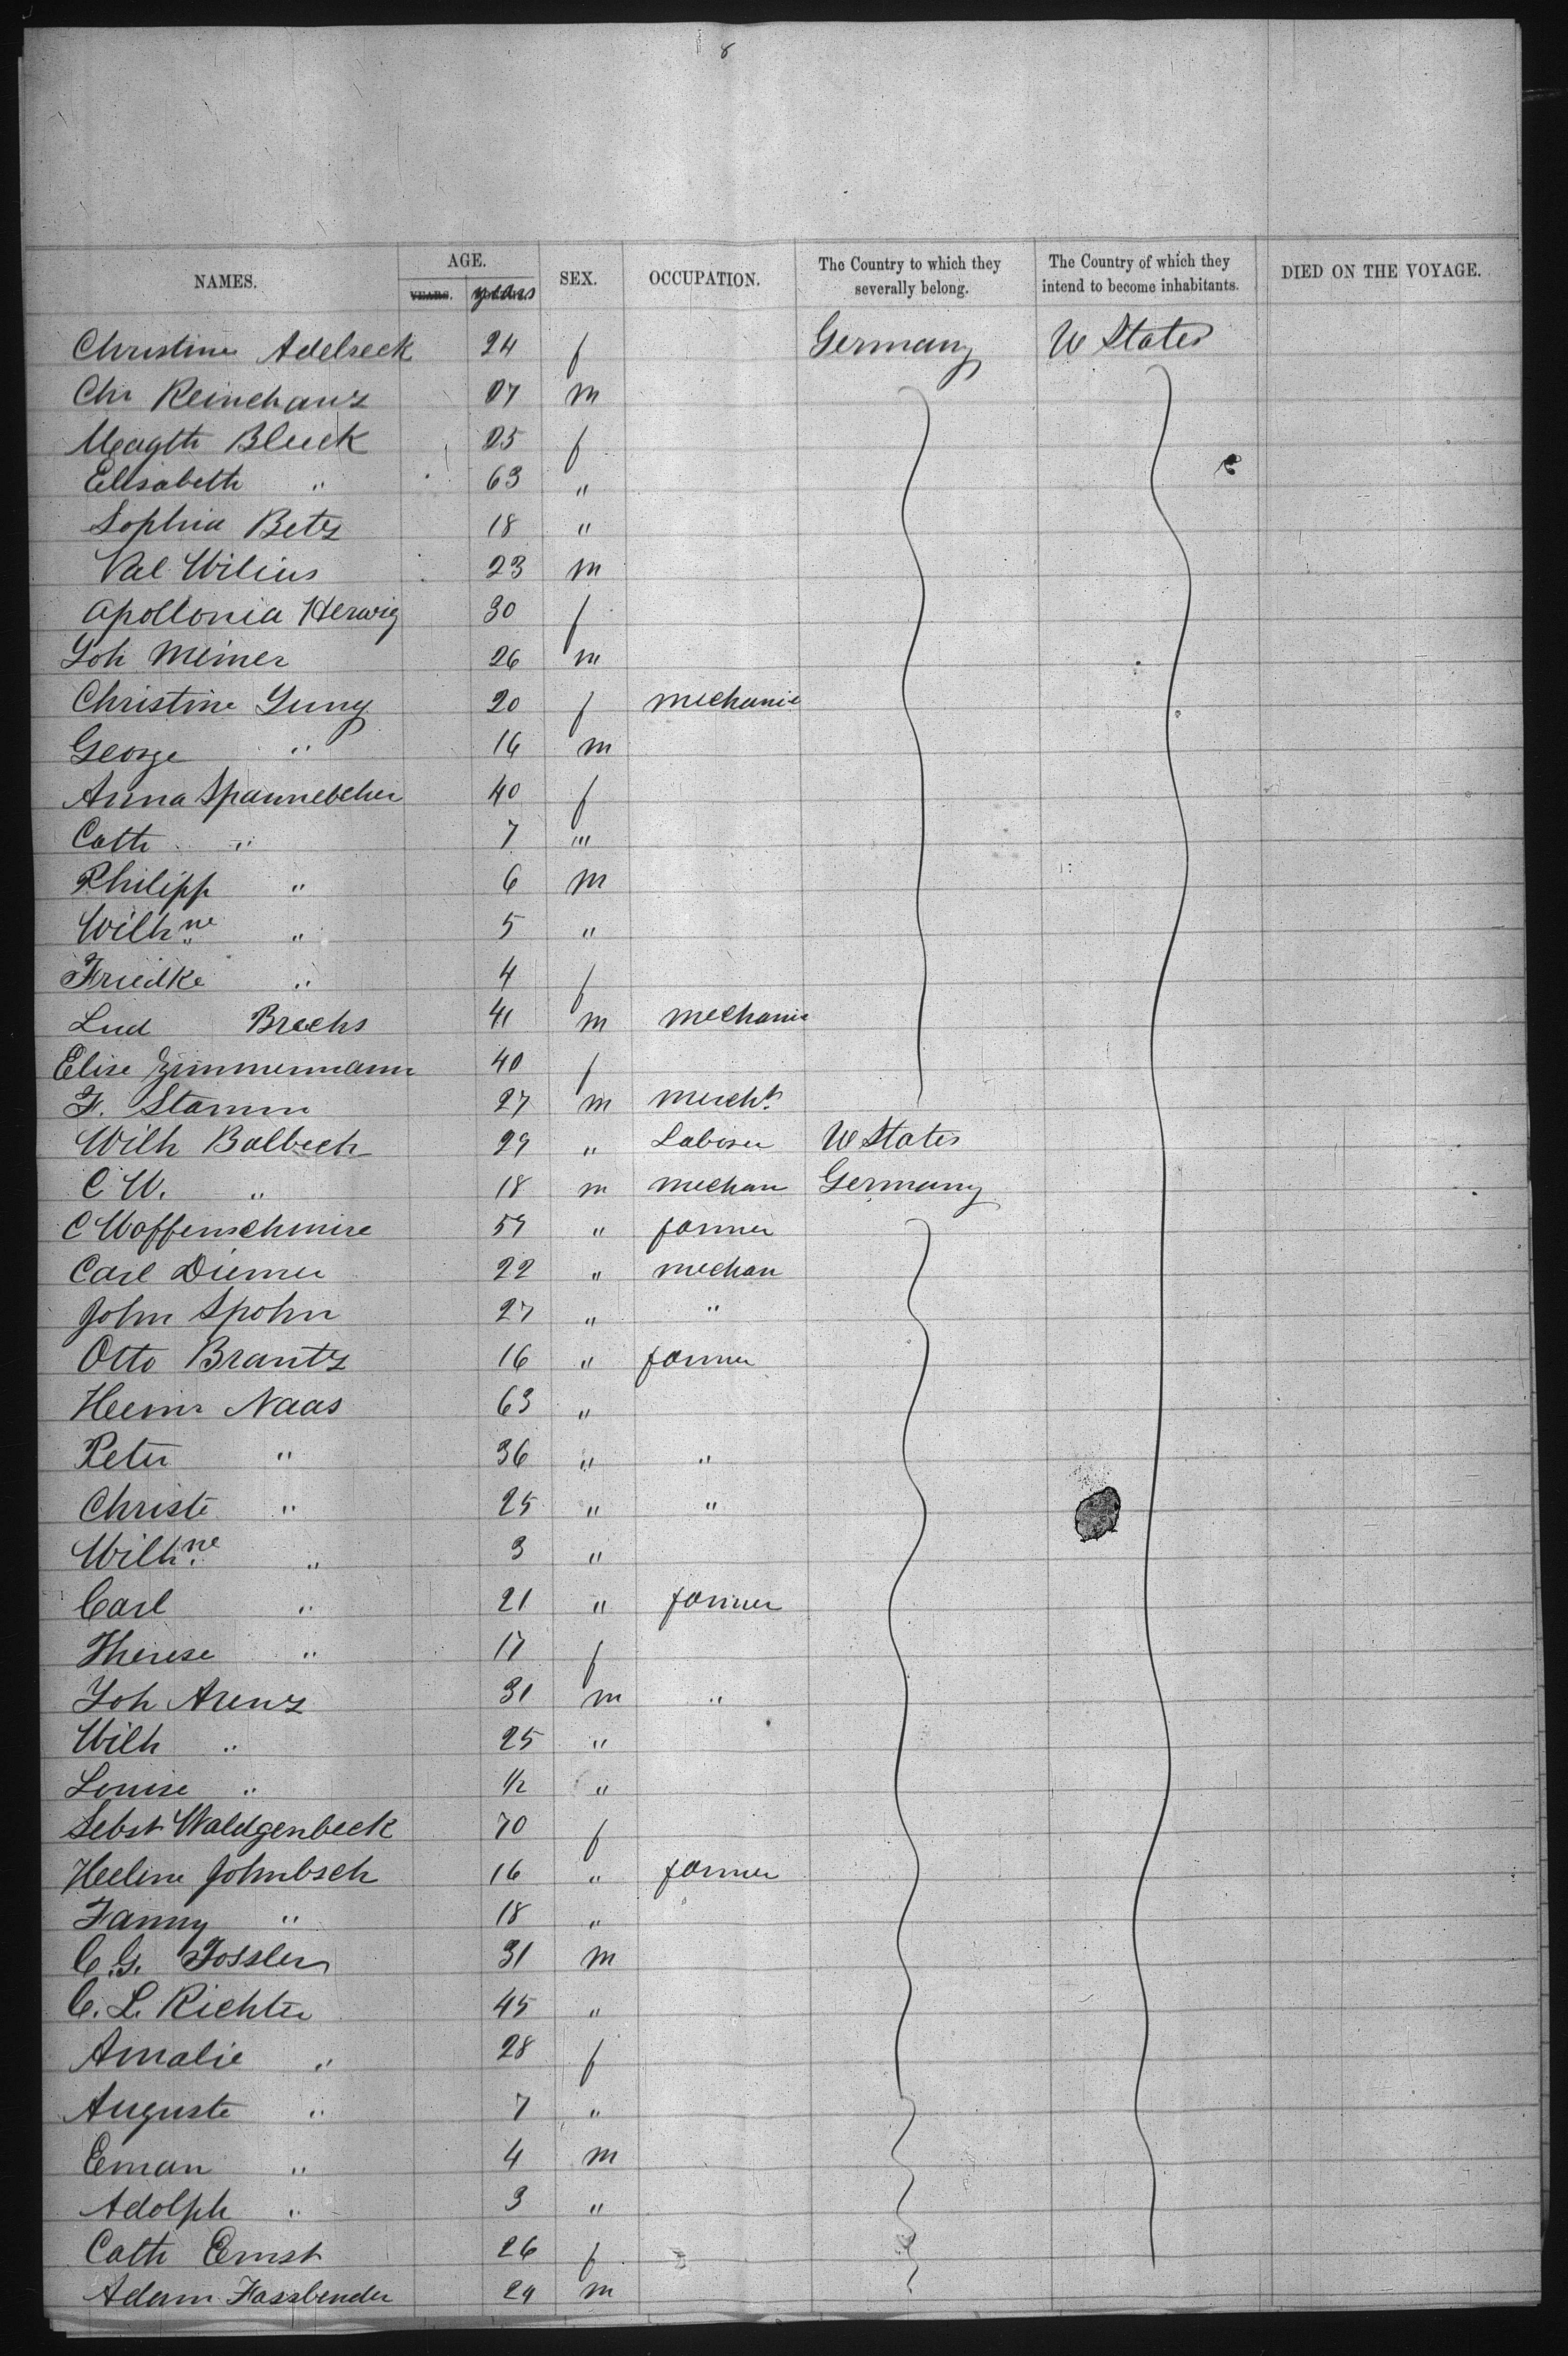 8
NAMES. AGE. SEX. OCCUPATION. The Country to which they severally belong. The Country of which they intend to become inhabitants. DIED ON THE VOYAGE.
YEARS. years
Christine Adelseck 24 f Germany U States
Chr Reinehanz 07 m
Magth Bluck 25 f
Elisabeth " 63 "
Sophia Betz 18 "
Val Wilius 23 m
Apollonia Herwig 30 f
Joh Meiner 26 m
Christine Jung 20 f mechanic
George " 16 m
Anna Spannebeher 40 f
Cath " 7 "
Philipp " 6 m
Wilhne " 5 "
Friedke " 4 f
Lud Brechs 41 m mechanic
Elise Zimmermann 40 f
F. Stamm 27 m mercht
Wilh Balbech 29 " Laborer U States
C W. " 18 m mechan Germany
C Waffenschmire 59 " farmer
Carl Diemer 22 " mechan
John Spohn 27 " "
Otto Brantz 16 " farmer
Heinr Naas 63 "
Peter " 36 " "
Christe " 25 " "
Wilhne " 3 "
Carl " 21 " farmer
Therese " 17 f
Joh Arenz 31 m "
Wilh " 25 "
Louise " 1/2 "
Sebst Waldgenbeck 70 f
Helene Johnbsch 16 " farmer
Fanny " 18 "
C. G. Fossler 31 m
C. L. Richter 45 "
Amalie " 28 f
Auguste " 7 "
Eman " 4 m
Adolph " 3 "
Cath Ernst 26 f
Adam Fassbender 24 m